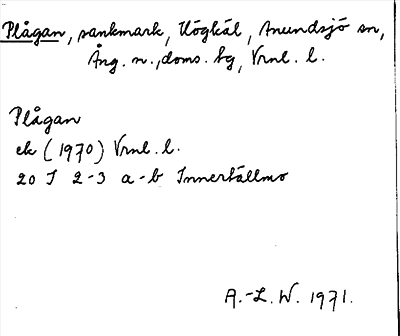 Plågan, sankmark, Högkäl, Anundsjö sn,
Ång. n., doms. bg, Vrnl. l.
Plågan
ek (1970) Vrnl. l.
20 I 2-3 a-b Innertällmo
A.-L. W. 1971.